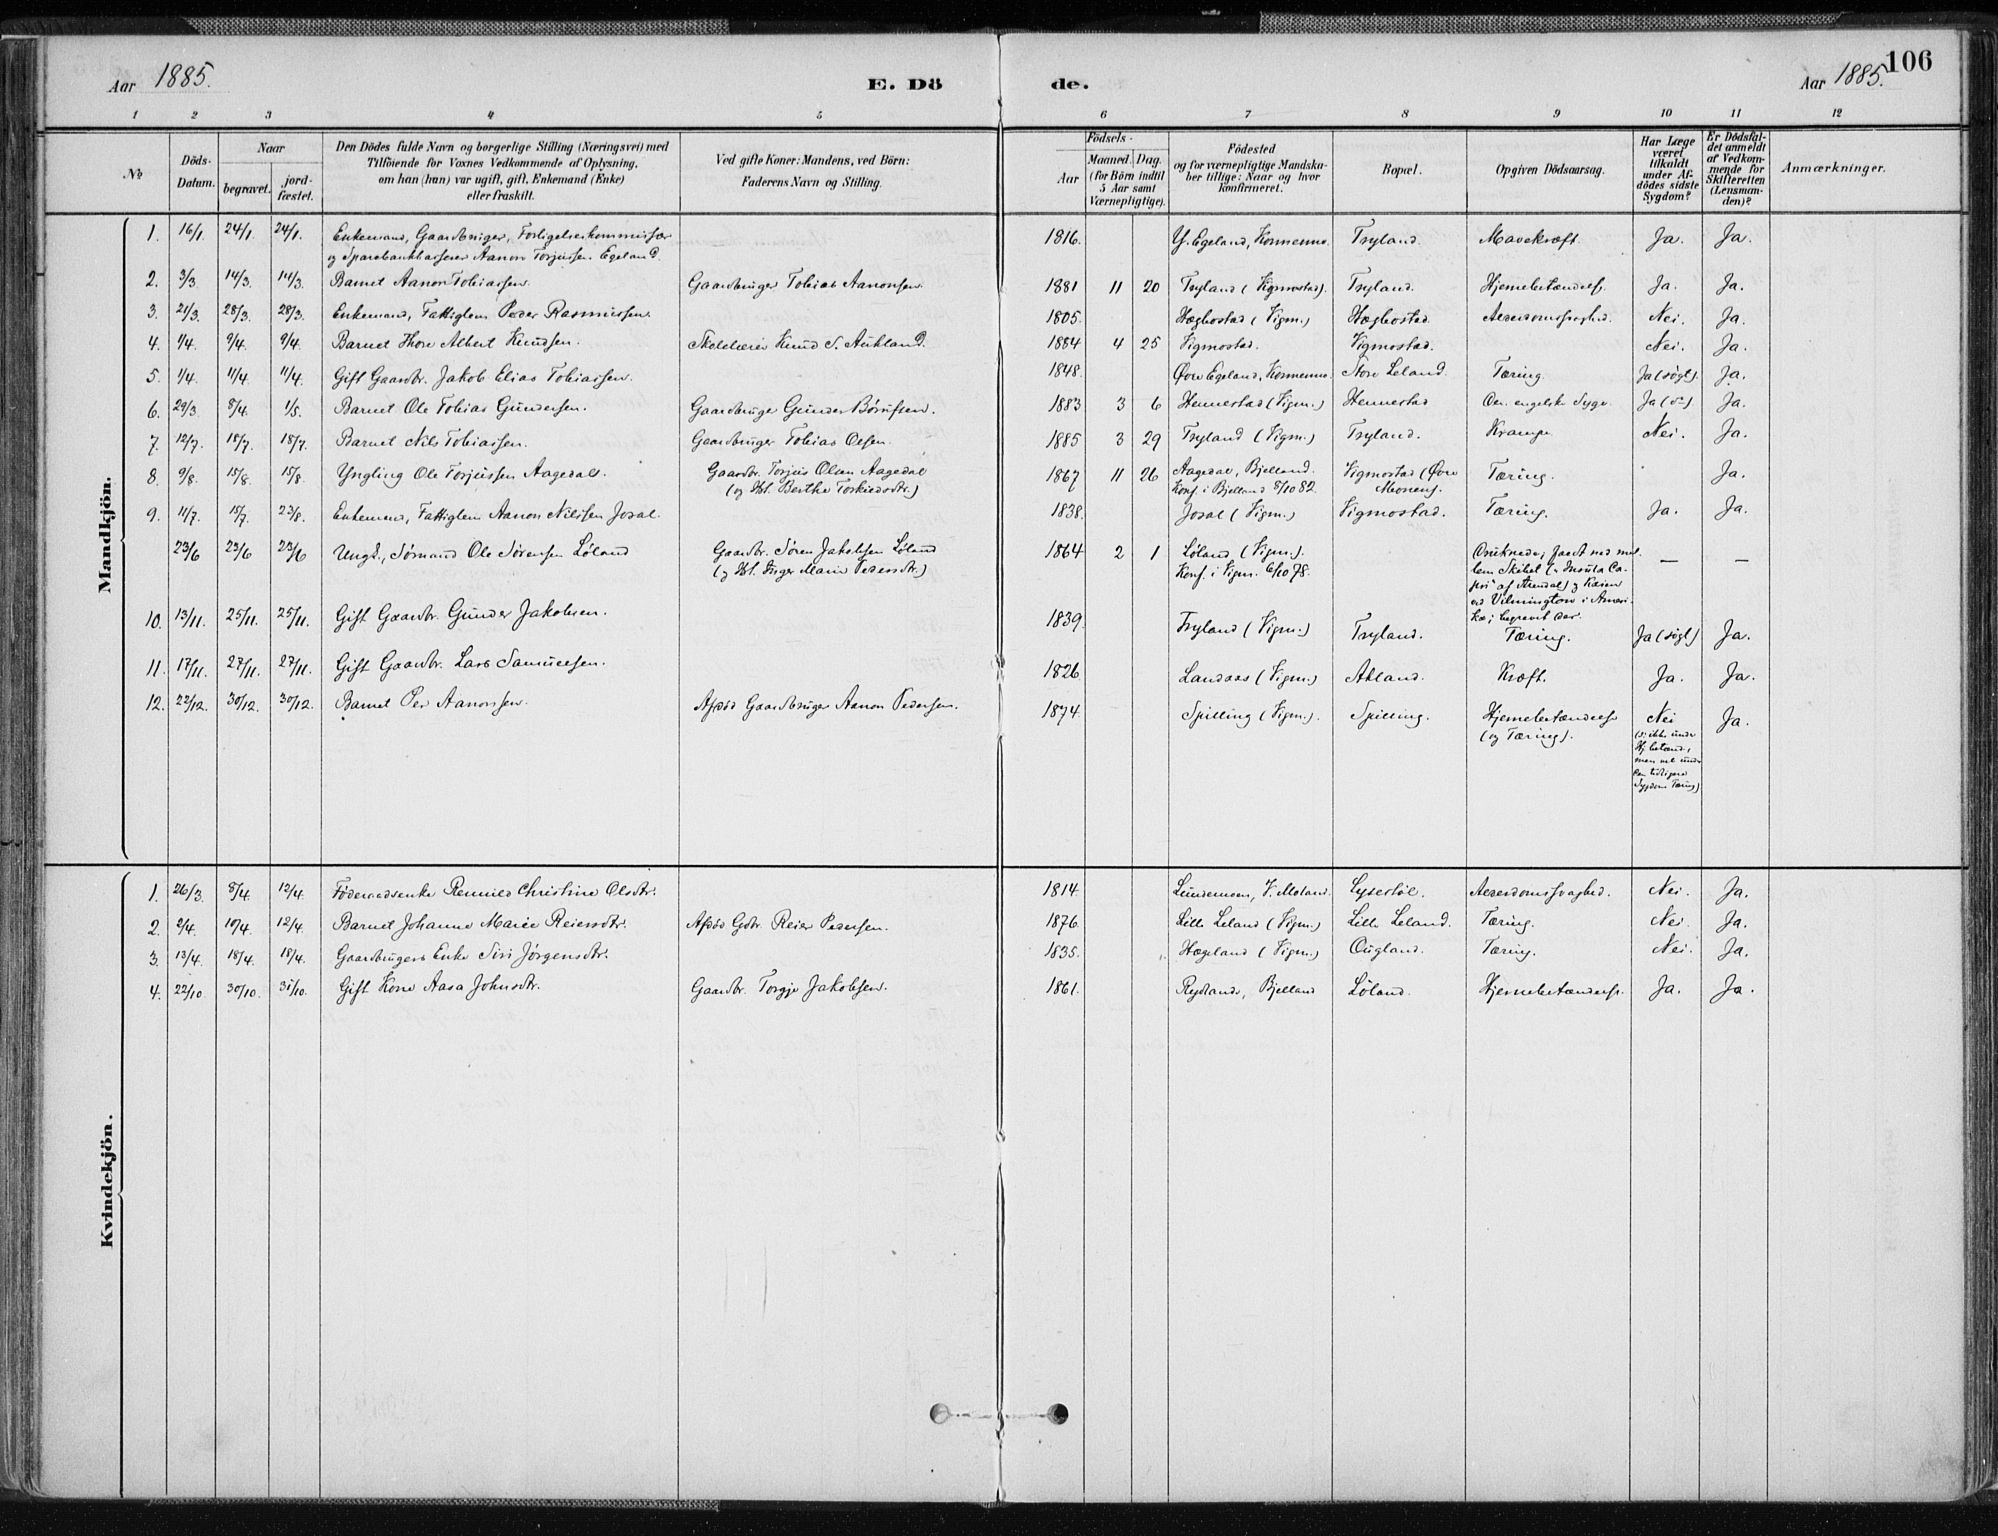 106
Aar 1885.
E. Dö de.
Aar 1885.
1 2 3 4 5 6 7 8 9 10 11 12
№
Döds-
Datum.
Naar
begravet.
jord-
fæstet.
Den Dödes fulde Navn og borgerlige Stilling (Næringsvei) med
Tilföiende for Voxnes Vedkommende af Oplysning,
om han (hun) var ugift, gift, Enkemand (Enke)
eller fraskilt.
Ved gifte Koner: Mandens, ved Börn:
Faderens Navn og Stilling.
Födsels-
Aar
Maaned. Dag.
(for Börn indtil
5 Aar samt
Værnepligtige).
Födested
og for værnepligtige Mandska-
ber tillige: Naar og hvor
konfirmeret.
Bopæl.
Opgiven Dödsaarsag.
Har Læge
været
tilkaldt
under Af-
dödes sidste
Sygdom?
Er Dödsfal-
det anmeldt
af Vedkom-
mende for
Skifteretten
(Lensman-
den)?
Anmærkninger.
Mandkjön.
1. 16/1. 24/1. 24/1. Enkemand, Gaardbruger, Forligelseskommissær 1816. Y. Egeland, Konnesmo. Tryland. Mavekræft. Ja. Ja.
og Sparebankkasserer Aanon Torjussen Egeland.
2. 3/3. 14/3. 14/3. Barnet Aanon Tobiassen. Gaardbruger Tobias Aanonsen. 1881 11 20 Tryland (Vigmostad). Tryland. Hjernebetændelse. Ja. Ja.
3. 21/3. 28/3. 28/3. Enkemand, Fattiglem Peder Rasmussen. 1805. Hægbostad (Vigm.) Hægbostad. Alderdomssvaghed. Nei. Ja.
4. 1/4. 9/4. 9/4. Barnet Thore Albert Knudsen. Skolelærer Knud S. Aukland. 1884 4 25 Vigmostad. Vigmostad. Nei. Ja.
5. 1/4. 11/4. 11/4. Gift Gaardbr. Jakob Elias Tobiassen. 1848. Øvre Egeland, Konnesmo. Nore Leland. Tæring. Ja (søgt). Ja.
6. 29/3. 8/4. 1/5. Barnet Ole Tobias Gundersen. Gaardbruger Gunder Børufsen. 1883 3 6 Hennestad (Vigm.) Hennestad Den engelske Syge. Ja (do) Ja.
7. 12/7. 18/7. 18/7. Barnet Nils Tobiassen. Gaardbruger Tobias Olsen. 1885 3 29 Tryland (Vigm.) Tryland. Krampe Nei. Ja.
8. 9/8. 15/8. 15/8. Yngling Ole Torjussen Aagedal. Gaardbr. Torjus Olsen Aagedal 1867 11 26 Aagedal, Bjelland. Vigmostad (Øvre Tæring. Ja.
(og Hst. Berthe Torkildsdtr.) Konf. i Bjelland 8/10 82.
9. 11/7. 15/7. 23/8. Enkemand, Fattiglem Aanon Nilssen Josdal. 1838. Josdal (Vigm.) Vigmostad. Tæring. Ja. Ja.
23/6 23/6 23/6 Ungk., Sømand Ole Sørensen Løland Gaardbr. Søren Jakobsen Løland 1864 2 1 Løland (Vigm.). Druknede; faldt ned mel- — —
(og Hst. Inger Marie Pedersdtr.) Konf. i Vigm. 6/10 78. lem Skibet ("Insula Ca-
pri" af Arendal) og Kaien
ved Vilmington i Ameri-
ka; begravet der.
10. 13/11. 25/11. 25/11. Gift Gaardbr. Gunder Jakobsen. 1839. Tryland (Vigm.) Tryland. Tæring. Ja (søgt) Ja.
11. 17/11. 27/11. 27/11. Gift Gaardbr. Lars Samuelsen. 1826 Landaas (Vigm.) Akland. Kræft. Ja. Ja.
12. 23/12. 30/12. 30/12. Barnet Per Aanonsen. Afdød Gaardbruger Aanon Pedersen. 1874. Spilling (Vigm.). Spilling. Hjernebetændelse Nei Ja.
(og Tæring). (ɔ: ikke under
Hj.betænd.,
men vel under
den tidligere
Sygdom Tæring)
Kvindekjön.
1. 26/3 8/4. 12/4. Føderaadsenke Rennild Christine Olsdtr. 1814. Lindemoen, V. Moland. Lyserløl. Alderdomssvaghed. Nei. Ja.
2. 2/4. 10/4. 12/4. Barnet Johanne Marie Reiersdtr. Afdød Gdbr. Reier Pedersen. 1876. Lille Leland (Vigm.) Lille Leland. Tæring. Nei. Ja.
3. 13/4. 18/4. 18/4. Gaardbrugers Enke Siri Jørgensdtr. 1835. Hægeland (Vigm.) Ougland. Tæring. Nei. Ja.
4. 22/10 30/10. 31/10. Gift Kone Aasa Johnsdtr. Gaardbr. Torgje Jakobsen. 1861. Rydland, Bjelland Løland. Hjernebetændelse. Ja. Ja.